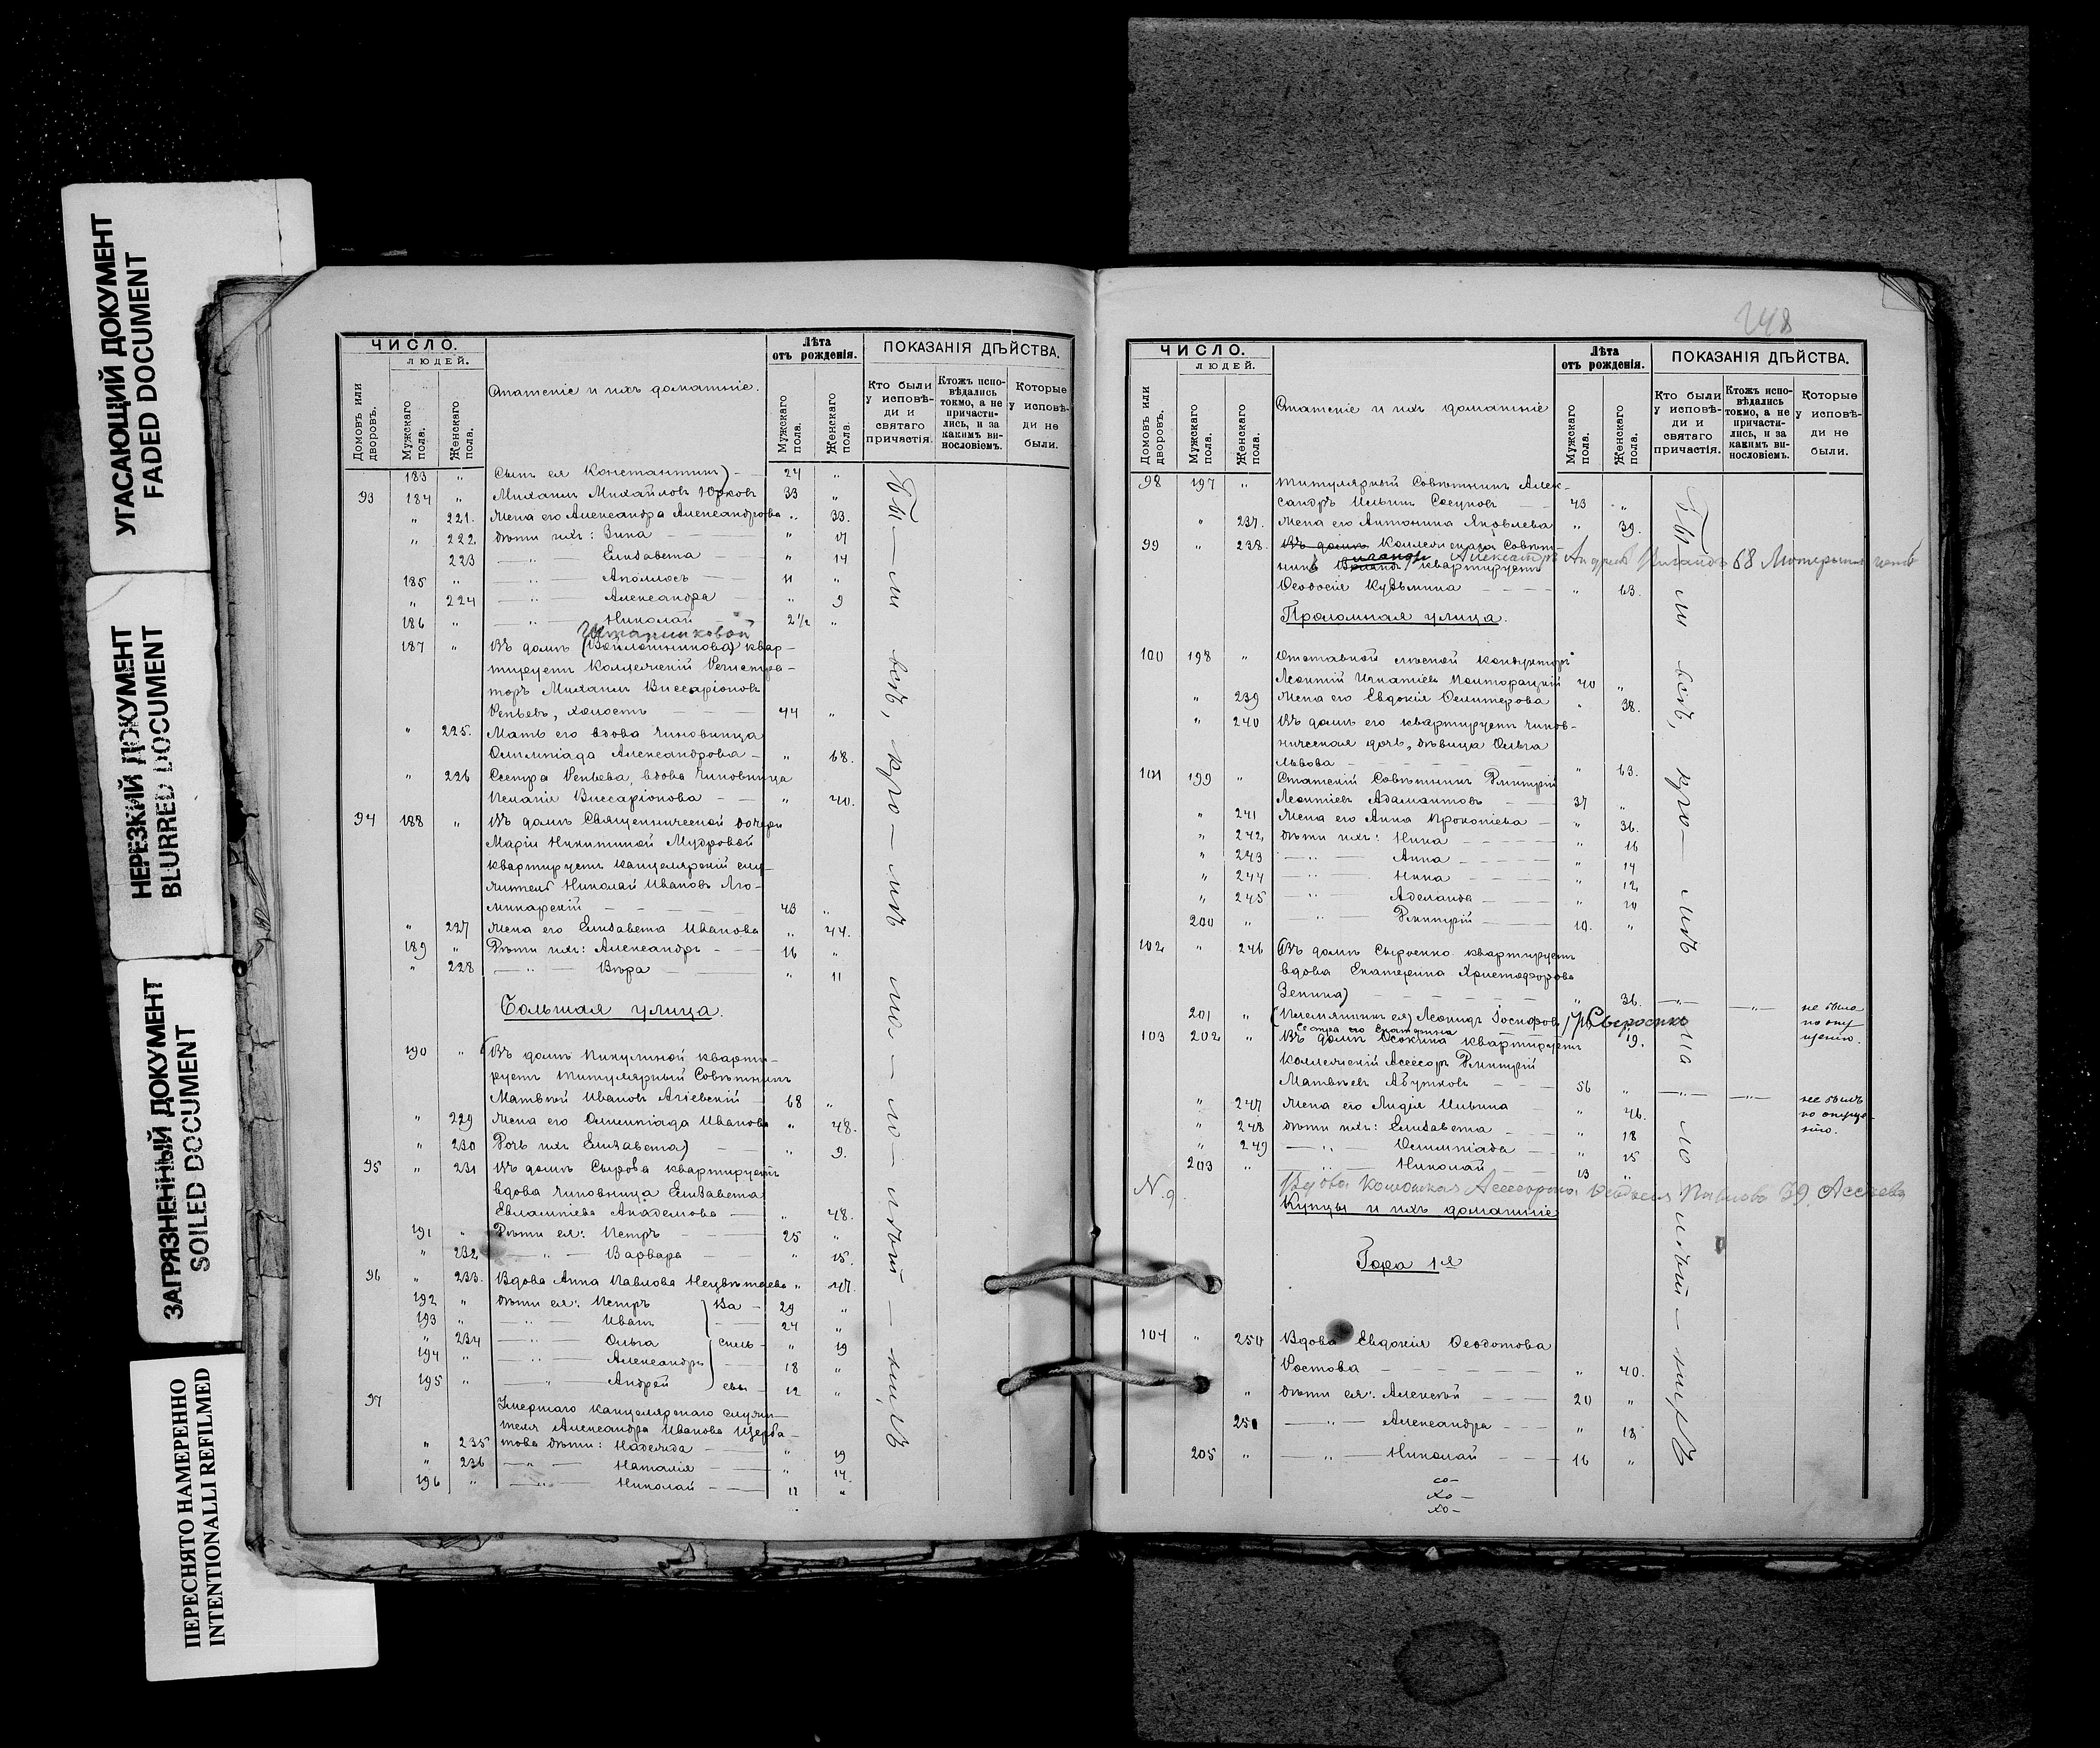 УГАСАЮЩИЙ ДОКУМЕНТ
FADED DOCUMENT
НЕРЕЗКИЙ ДОКУМЕНТ
BLURRED DOCUMENT
ЗАГРЯЗНЕННЫЙ ДОКУМЕНТ
SOILED DOCUMENT
ПЕРЕСНЯТО НАМЕРЕННО
INTENTIONALLI REFILMED
ЧИСЛО.
ЛЮДЕЙ.
Домовъ или дворовъ.
Мужскаго пола.
Женскаго пола.
Статскіе и ихъ домашніе.
Лѣта отъ рожденія.
Мужскаго пола.
Женскаго пола.
ПОКАЗАНІЯ ДѢЙСТВА.
Кто были у исповѣди и святаго причастія.
Ктожъ исповѣдались токмо, а не причастились, и за какимъ винословіемъ.
Которые у исповѣди не были.
183 " Сынъ ея Константинъ) — 24 "
93 184 " Михаилъ Михайловъ Юрковъ 33 "
" 221. Жена его Александра Александрова " 33.
" 222 Дѣти ихъ: Зина — " 17
223 — " — Елизавета — " 14
185 " — " — Аполлосъ — 11 "
" 224 — " — Александра — " 9
186 " — " — Николай 2½ "
187 " Въ домѣ (Войлошникова) квар-
тируетъ Коллежскій Регистра-
торъ Михаилъ Виссаріоновъ
Репьевъ, холостъ — 44 "
" 225. Мать его вдова чиновница
Олимпіада Александрова — " 68.
" 226 Сестра Репьева, вдова чиновница
Пелагія Виссаріонова — " 40.
94 188 " Въ домѣ Священнической дочери
Маріи Никитиной Мудровой
квартируетъ канцелярскій слу-
житель Николай Ивановъ
43 "
" 227 Жена его Елизавета Иванова " 44.
189 " Дѣти ихъ: Александръ — 16 "
" 228 — " — Вѣра — " 11
Большая улица.
190 " (Въ домѣ Пикулиной кварти-
руетъ Титулярный Совѣтникъ
Матвѣй Ивановъ Агіевскій — 68 "
" 229 Жена его Олимпіада Иванова " 48.
" 230 Дочь ихъ Елизавета) — " 9.
95 " 231 Въ домѣ Сырова квартируетъ
вдова чиновница Елизавета
Евлампіева Академова — " 48.
191 " Дѣти ея: Петръ — 25 "
" 232 — " — Варвара — " 15.
96 " 233. Вдова Анна Павлова Нецвѣтаева " 47.
192 " Дѣти ея: Петръ Ва — 29 "
193 " — " — Иванъ — 24 "
" 234 — " — Ольга силь — " 19
194 " — " — Александръ — 18 "
195 " — " — Андрей евы — 12 "
97 Умершаго канцелярскаго служи-
теля Александра Иванова Щерба-
" 235 това дѣти: Надежда — " 19
" 236 — " — Наталія — " 14.
196 " — " — Николай — 12 "
Бы — ли всѣ, кро — мѣ мо — ло — лѣтн
248
ЧИСЛО.
ЛЮДЕЙ.
Домовъ или дворовъ.
Мужскаго пола.
Женскаго пола.
Статскіе и ихъ домашніе
Лѣта отъ рожденія.
Мужскаго пола.
Женскаго пола.
ПОКАЗАНІЯ ДѢЙСТВА.
Кто были у исповѣди и святаго причастія.
Ктожъ исповѣдались токмо, а не причастились, и за какимъ винословіемъ.
Которые у исповѣди не были.
98 197 " Титулярный Совѣтникъ Алек-
сандръ Ильинъ Сосуновъ — 43 "
" 237. Жена его Антонина Яковлева " 39.
99 " 238. Въ домѣ Коллежскаго Совѣт-
Александръ Андреевъ 68
квартируетъ
Ѳеодосія Кузьмина — " 63.
Проломная улица.
100 198 " Отставной лѣсной кондукторъ
Леонтій Игнатіевъ 40 "
" 239 Жена его Евдокія " 38.
" 240 Въ домѣ его квартируетъ чинов-
ническая дочь, дѣвица Ольга
Львова — " 63.
101 199 " Статскій Совѣтникъ Дмитрій
Леонтіевъ Адамантовъ — 37 "
" 241 Жена его Анна Прокопіева — " 36.
" 242 Дѣти ихъ: Нина — " 16
" 243 — " — Анна — " 14
" 244 — " — Нина — " 12
" 245 — " — Аделаида — "
200 " — " — Дмитрій — 10. "
102 " 246 (Въ домѣ Сыроенко квартируетъ
вдова Екатерина Христофорова
Зенина) — " 36. — " — — " — не была по опущенію.
201 " (Племянникъ ея) Леонидъ Іосифовъ Сыроенко 19.
Сестра его Екатерина
103 202 " Въ домѣ Осокина квартируетъ
Коллежскій Асессоръ Дмитрій
Матвѣевъ Абутковъ — 56 " — " — — " — не былъ по опуще-
нію.
" 247 Жена его Лидія Ильина — " 46.
" 248 Дѣти ихъ: Елизавета — " 18
" 249 — " — Олимпіада — " 15
203 " — " — Николай — 13 "
Вдова Асессорша Павлова 39
Купцы и ихъ домашніе
Гора 1я
104 " 250 Вдова Евдокія Ѳеодотова
Ростова — " 40.
" Дѣти ея: Алексѣй — 20 "
251 — " — Александра — " 18
205 " — " — Николай — 16 "
Бы — ли всѣ, кро — мѣ ма — ло — лѣтн